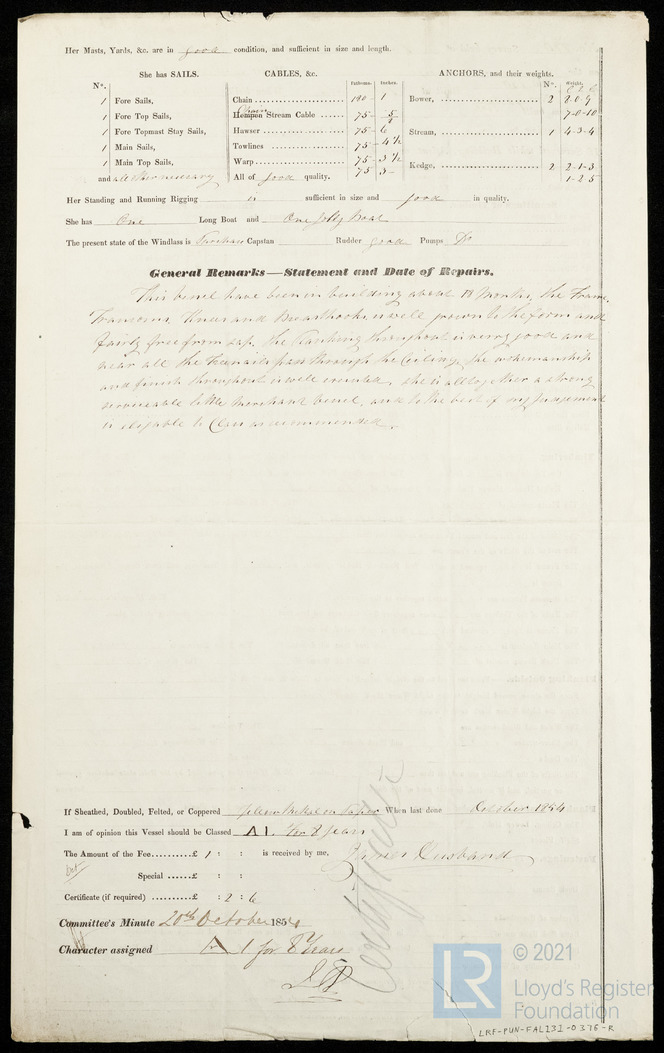 Her Masts, Yards, &c. are in good condition, and sufficient in size and length.
She has SAILS. CABLES, &c. ANCHORS, and their weights.
N°. Fathoms. Inches. N°. Weight.
1 Fore Sails, Chain 1 Bower, 2
1 Fore Top Sails, Hempen Chain Stream Cable 75 7-0-10
1 Fore Topmast Stay Sails, Hawser 75 6 Stream, 1 4-3-4
1 Main Sails, Towlines 75 4 ½
1 Main Top Sails, Warp 75 3 ½ Kedge, 2 2-1-3
and all other necessary All of good quality. 75 3 1-2-5
Her Standing and Running Rigging is sufficient in size and good in quality.
She has One Long Boat and One Jolly Boat
The present state of the Windlass is Capstan Rudder good Pumps Do
General Remarks—Statement and Date of Repairs.
This vessel have been in building about 18 Months, the Frame,
Transoms, Knees and Breasthooks is well grown to the form and
fairly free from sap. the Planking throughout is very good and
near all the Treenails pass through the Ceiling. the workmanship
and finish throughout is well executed, she is alltogether a strong
serviceable little Merchant vessel, and to the best of my Judgement
is eligible to Class as recommended.
If Sheathed, Doubled, Felted, or Coppered on Paper When last done October 1854
I am of opinion this Vessel should be Classed A 1. for 8 years
The Amount of the Fee £ 1 : : is received by me, James Husband
Special £ : :
Certificate (if required) £ : 2 : 6
Certificate
Committee's Minute 20th October 1854
Character assigned A 1 for 8 Years
© 2021
LR
Lloyd's Register
Foundation
LRF-PUN-FAL131-0376-R